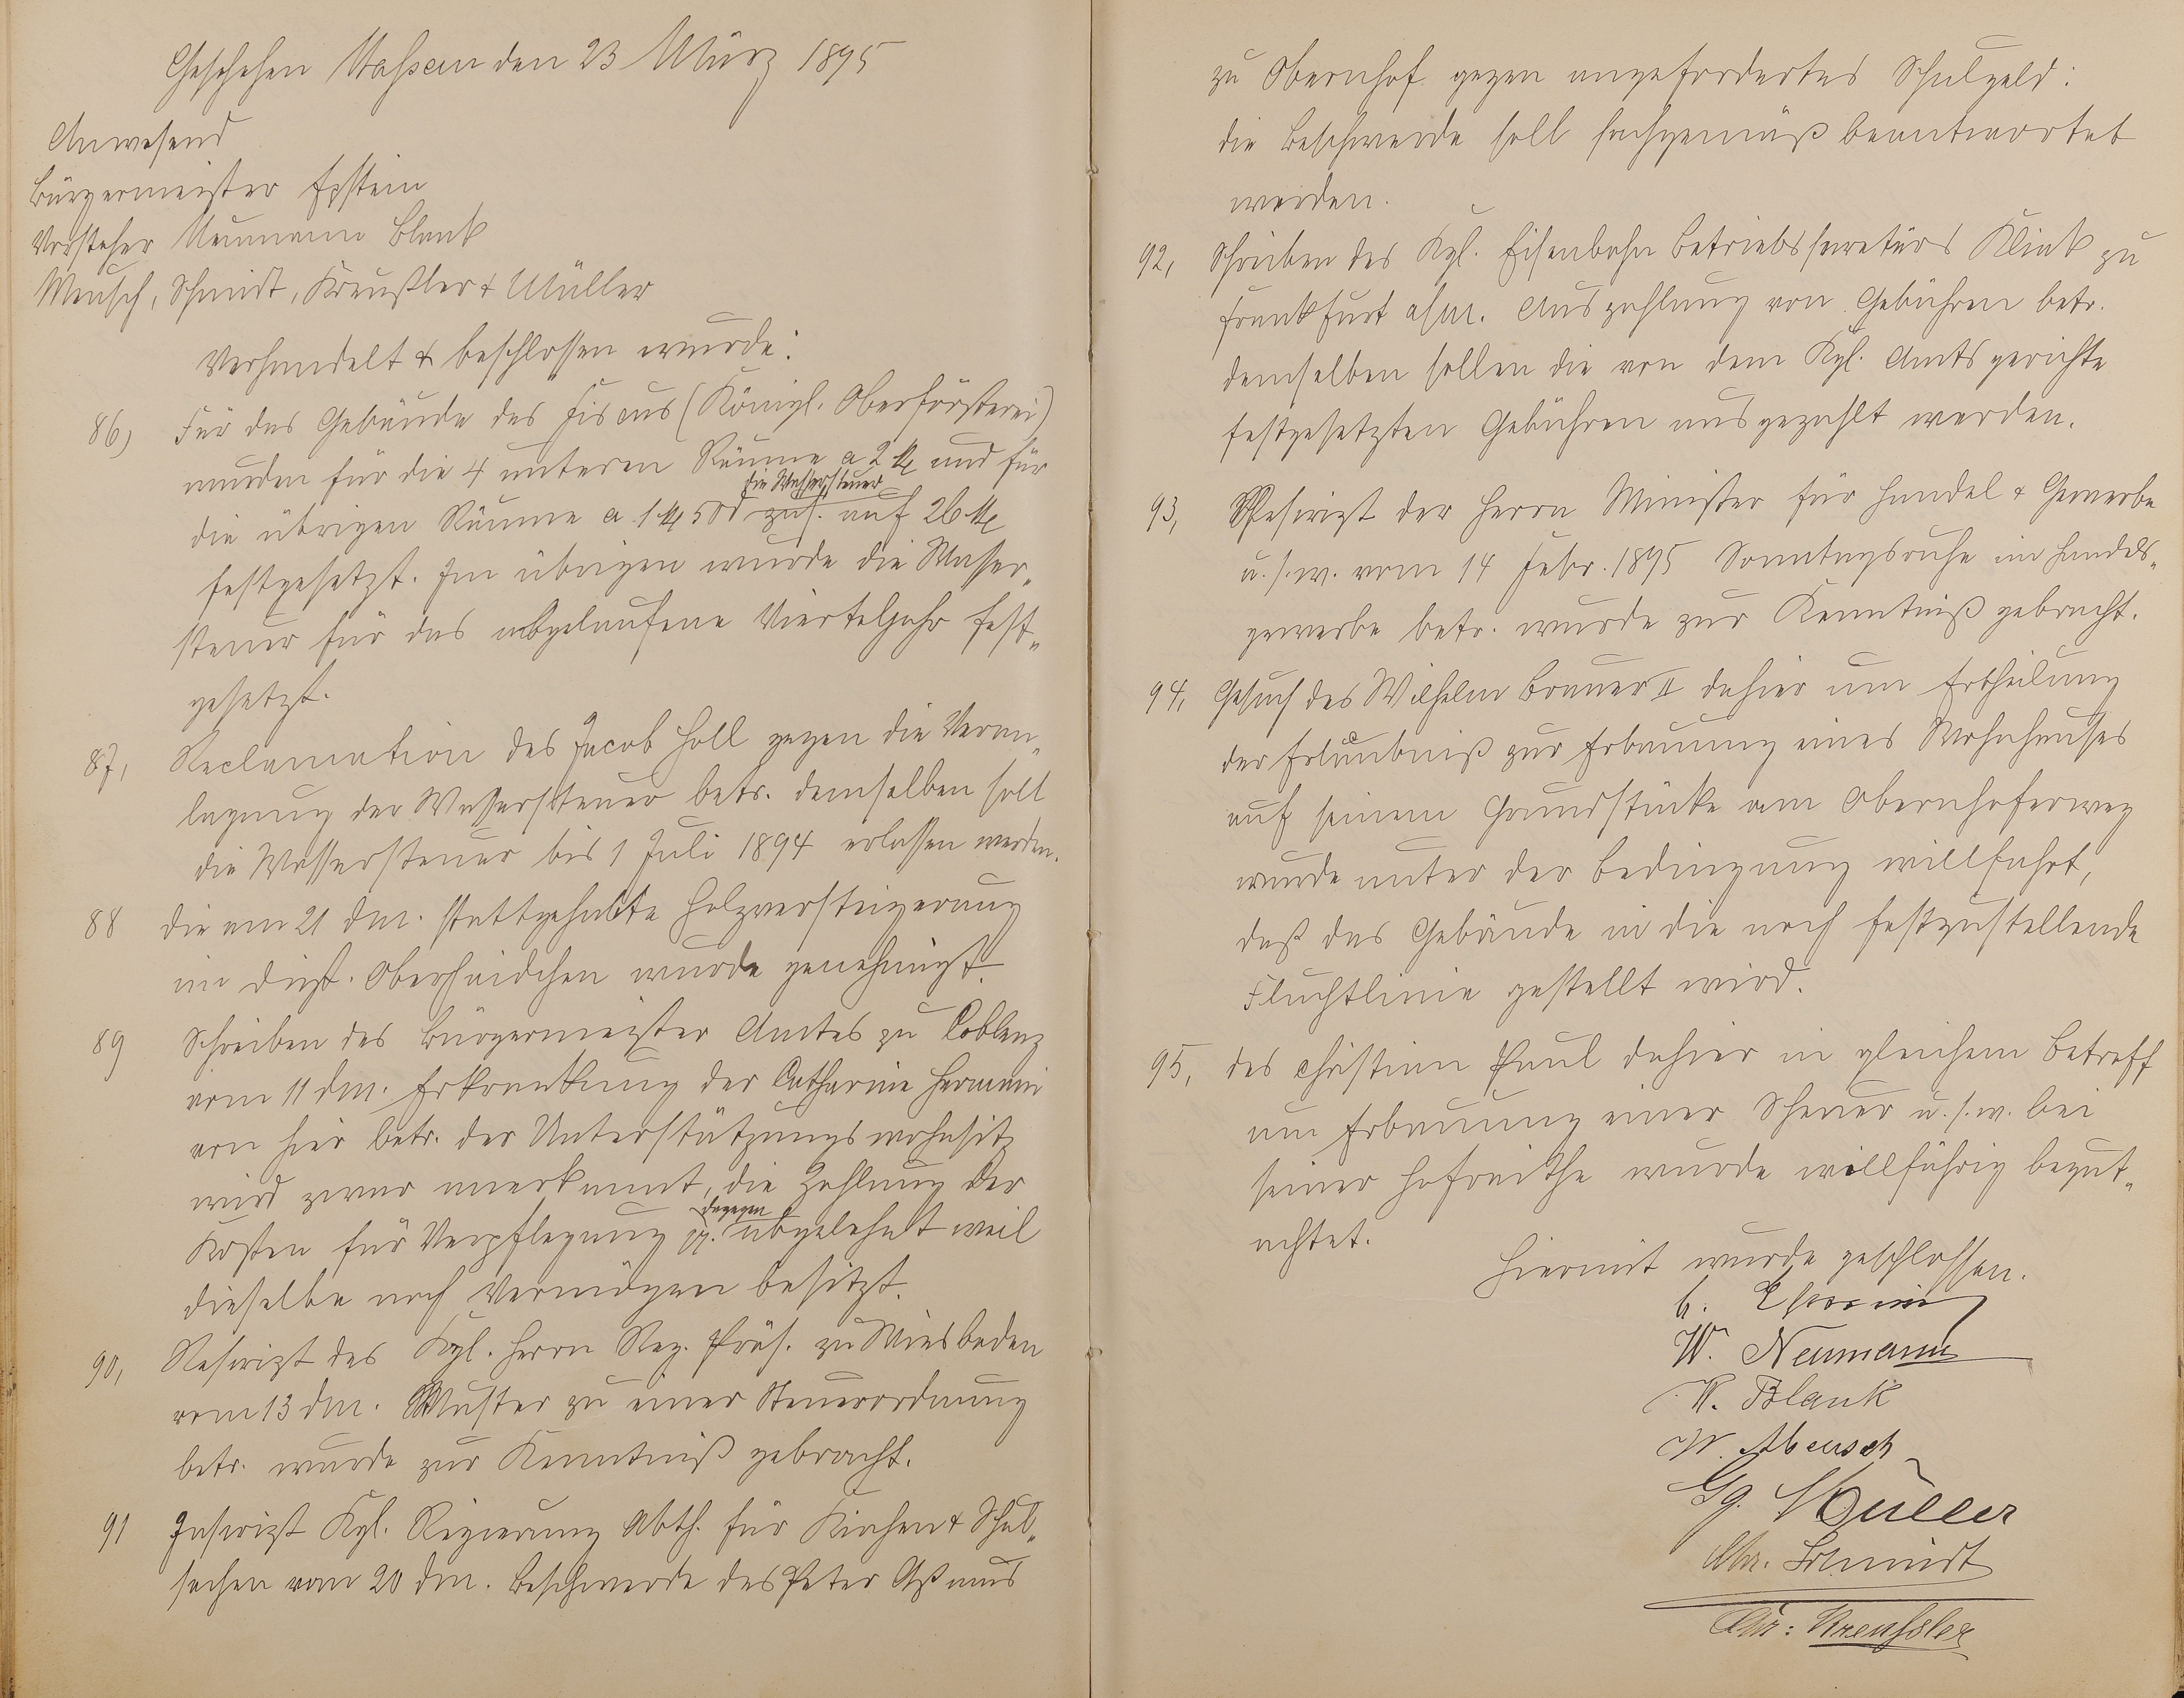 Geschehen Nassau den 23 März 1895
Anwesend
Bürgermeister Epstein
Vorsteher Neumann Blank
Mensch, Schmidt, Kreußler & Müller
Verhandelt & beschlossen wurde:
86) Für das Gebäude des Fiscus (Königl. Oberförsterei)
wurden für die 4 unteren Räume a 2 M und für
die Wassersteuer
die übrigen Räume a 1 M 50 d zus. auf 26 M
festgesetzt. Im übrigen wurde die Wasser„
steuer für das abgelaufene Vierteljahr fest„
gesetzt.
87, Reclamation des Jacob Holl gegen die Veran„
lagung der Wassersteuer betr. demselben soll
die Wassersteuer bis 1 Juli 1894 erlassen werden.
88 die am 21 dM. stattgehabte Holzversteigerung
im Dist. Oberhaidchen wurde genehmigt.
89 Schreiben des Bürgermeister Amtes zu Coblenz
vom 11 dM. Erkrankung der Catharine Hermani
von hier betr. der Unterstützungswohnsitz
wird zwar anerkannt, die Zahlung der
dagegen
Kosten für Verpflegung pp. abgelehnt weil
dieselbe noch Vermögen besitzt.
90, Rescript des Kgl. Herrn Reg. Präs. zu Wiesbaden
vom 13 dM. Muster zu einer Steuerordnung
betr. wurde zur Kenntniß gebracht.
91 Inscript Kgl. Regierung Abth. für Kirchen & Schul„
sachen vom 20 dM. Beschwerde des Peter Aßmus
zu Obernhof gegen angefordertes Schulgeld:
die Beschwerde soll sachgemäß beantwortet
werden.
92, Schreiben des Kgl. Eisenbahn Betriebssecretärs Klink zu
Frankfurt a/M. Auszahlung von Gebühren betr.
demselben sollen die von dem Kgl. Amtsgerichte
festgesetzten Gebühren ausgezahlt werden.
93, Rescript der Herrn Minister für Handel & Gewerbe
u. s. w. vom 14 Febr. 1895 Sonntagsruhe im Handels„
gewerbe betr. wurde zur Kenntniß gebracht.
94, Gesuch des Wilhelm Bruner II dahier um Ertheilung
der Erlaubniß zur Erbauung eines Wohnhauses
auf seinem Grundstücke am Obernhoferweg
wurde unter der Bedingung willfahrt,
daß das Gebäude in die noch festzustellende
Fluchtlinie gestellt wird.
95, des Christian Paul dahier in gleichem Betreff
um Erbauung einer Scheuer u. s. w. bei
seiner Hofraithe wurde willfährig begut„
achtet.
Hiermit wurde geschlossen.
W. Neumann
W. Blank
W. Mensch
Gg. Müller
Chr. Schmidt
Chr: Kreußler